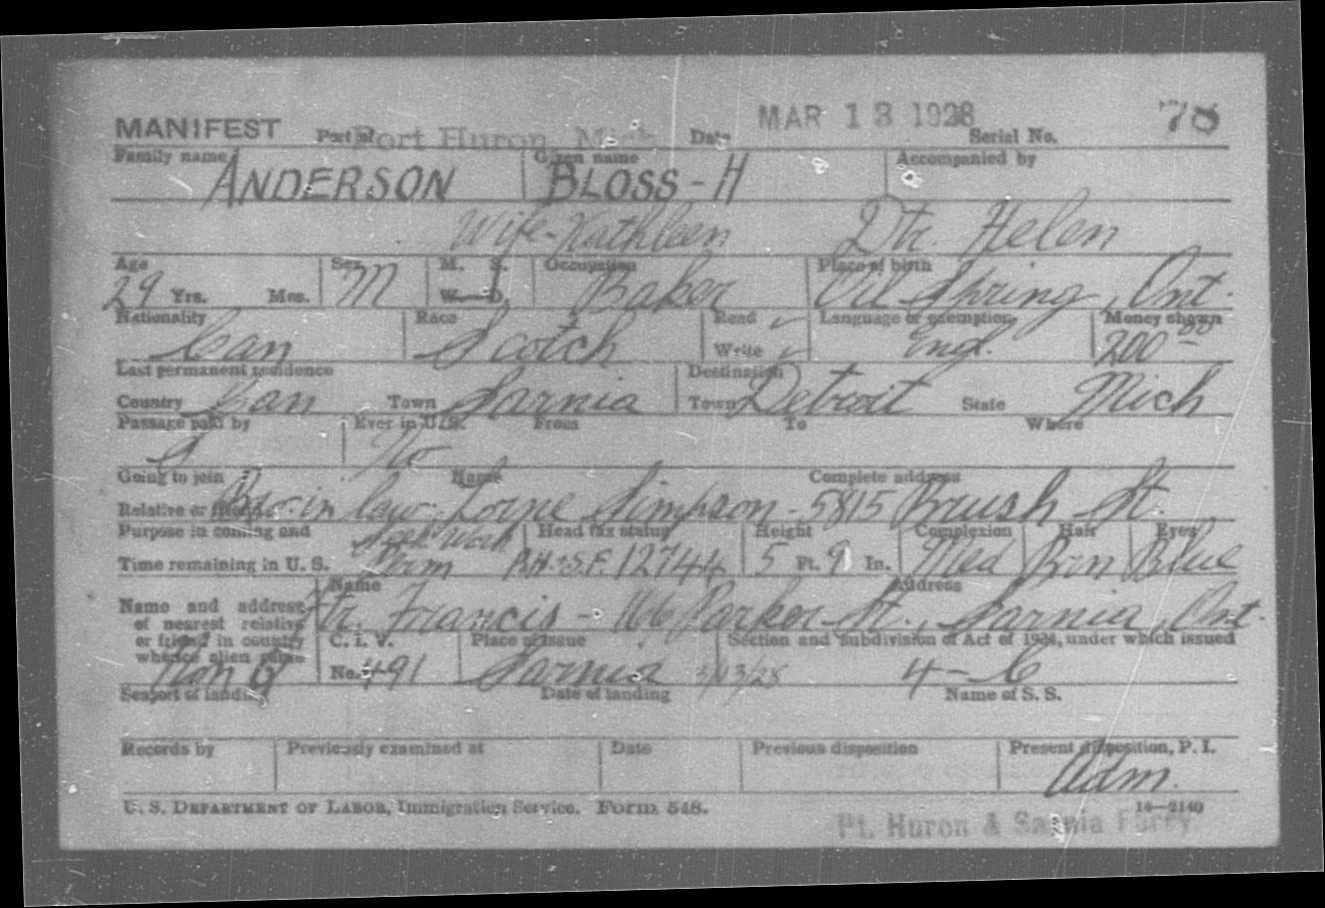 MANIFEST Port of Port Huron, Mich. Date MAR 13 1928 Serial No. 78
Family name ANDERSON Given name BLOSS-H Accompanied by
Wife-Kathleen Dtr. Helen
Age 29 Yrs. Mos. Sex M M. S. W. D. Occupation Baker Place of birth Oil Spring, Ont.
Nationality Can Race Scotch Read ✓ Write ✓ Language or exemption Engl. Money shown 200 00
Last permanent residence Country Can Town Sarnia Destination Town Detroit State Mich
Passage paid by S Ever in U.S. No From To Where
Going to join Name Complete address
Relative or friend Bro-in law- Lorne Simpson - 5815 Brush St.
Purpose in coming and Seek Work Head tax status Height Complexion Hair Eyes
Time remaining in U. S. Perm P.H.-S.F. 12744 5 Ft. 9 In. Med Brn Blue
Name and address of nearest relative or friend in country whence alien came Name Address
Fr. Francis - 166 Parker St., Sarnia, Ont.
C. I. V. Place of issue Section and subdivision of Act of 1924, under which issued
No. 491 Sarnia 3/13/28 4-C
Seaport of landing Date of landing Name of S. S.
Records by Previously examined at Date Previous disposition Present disposition, P. I.
Adm.
U. S. DEPARTMENT OF LABOR, Immigration Service. Form 548. 14—2140
Pt. Huron & Sarnia Ferry